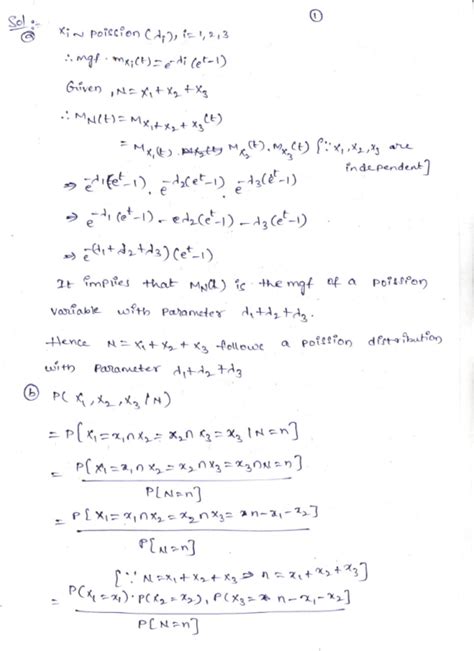 ①
Sol :-
ⓐ xᵢ ~ poission (λᵢ), i=1,2,3
∴ mgf. mxᵢ(t) = e^-λᵢ(e^t-1)
Given, N = x₁ + x₂ + x₃
∴ M_N(t) = M_x₁+x₂+x₃(t)
= M_x₁(t). M_x₂(t). M_x₃(t) [∵ x₁, x₂, x₃ are
independent]
⇒ e^-λ₁(e^t-1). e^-λ₂(e^t-1). e^-λ₃(e^t-1)
⇒ e^-λ₁(e^t-1) - eλ₂(e^t-1) - λ₃(e^t-1)
⇒ e^-(λ₁+λ₂+λ₃)(e^t-1)
It implies that M_N(t) is the mgf of a poission
variable with parameter λ₁+λ₂+λ₃.
Hence N = x₁ + x₂ + x₃ follows a poission distribution
with parameter λ₁+λ₂+λ₃
ⓑ P(x₁, x₂, x₃ | N)
= P[x₁=x₁∩x₂=x₂∩x₃=x₃ | N=n]
= P[x₁=x₁∩x₂=x₂∩x₃=x₃∩N=n]
P[N=n]
= P[x₁=x₁∩x₂=x₂∩x₃= n-x₁-x₂]
P[N=n]
[∵ N=x₁+x₂+x₃ ⇒ n=x₁+x₂+x₃]
= P(x₁=x₁). P(x₂=x₂), P(x₃= n-x₁-x₂]
P[N=n]